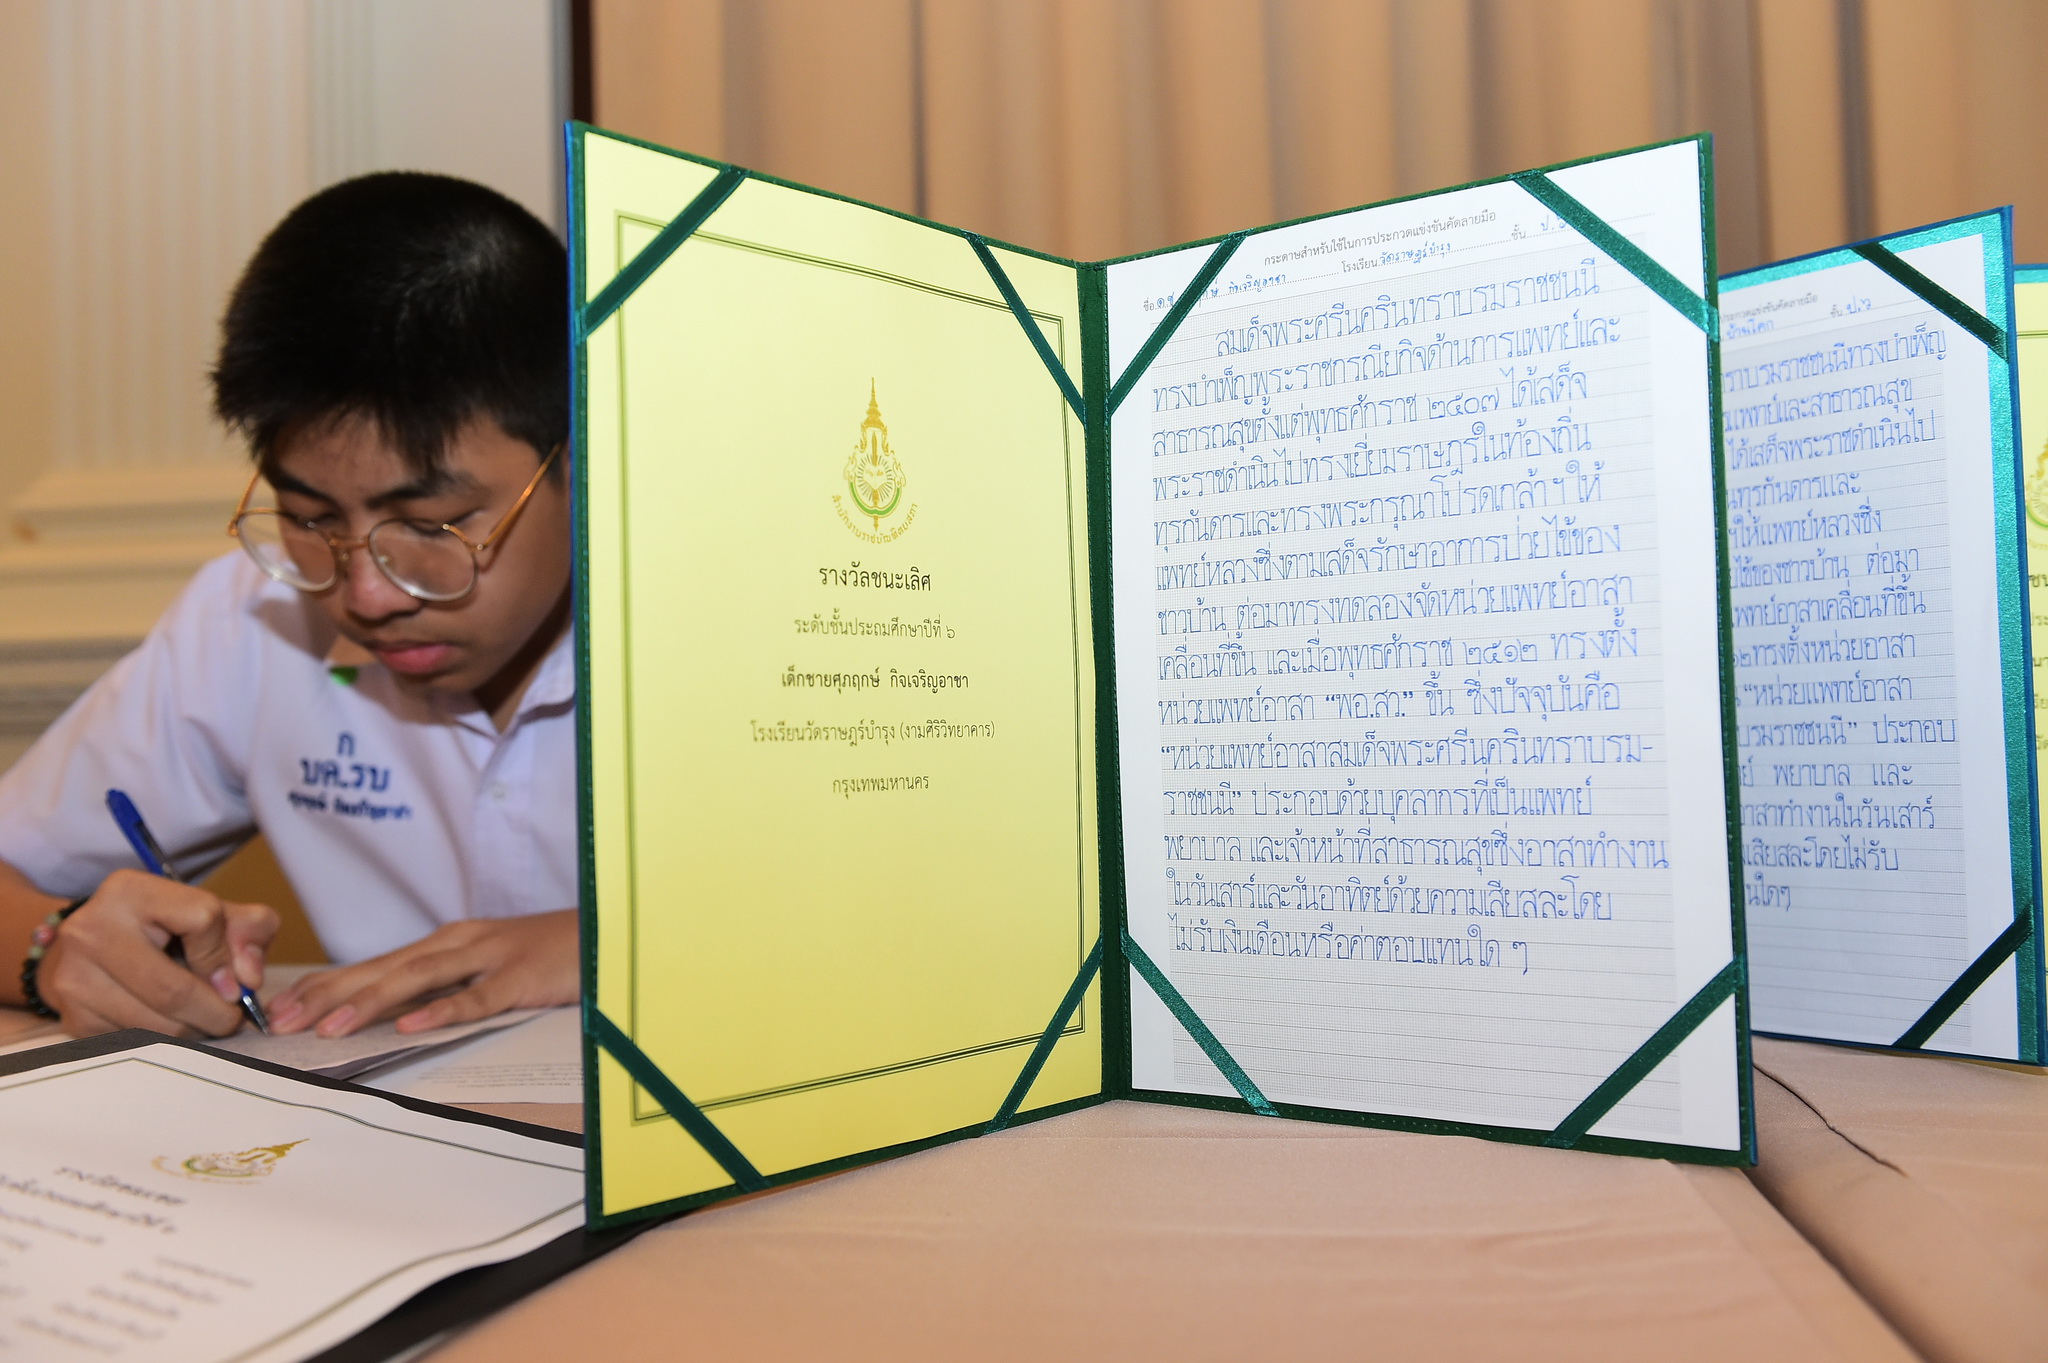 สำนักงานราชบัณฑิตยสภา
รางวัลชนะเลิศ
ระดับชั้นประถมศึกษาปีที่ ๖
เด็กชายศุภฤกษ์ กิจเจริญอาชา
โรงเรียนวัดราษฎร์บำรุง (งามศิริวิทยาคาร)
กรุงเทพมหานคร
กระดาษสำหรับใช้ในการประกวดแข่งขันคัดลายมือ
ชื่อ ด.ช. กิจเจริญอาชา โรงเรียน วัดราษฎร์บำรุง ชั้น ป.
สมเด็จพระศรีนครินทราบรมราชชนนี
ทรงบำเพ็ญพระราชกรณียกิจด้านการแพทย์และ
สาธารณสุขตั้งแต่พุทธศักราช ๒๕๐๗ ได้เสด็จ
พระราชดำเนินไปทรงเยี่ยมราษฎรในท้องถิ่น
ทุรกันดารและทรงพระกรุณาโปรดเกล้าฯ ให้
แพทย์หลวงซึ่งตามเสด็จรักษาอาการป่วยไข้ของ
ชาวบ้าน ต่อมาทรงทดลองจัดหน่วยแพทย์อาสา
เคลื่อนที่ขึ้น และเมื่อพุทธศักราช ๒๕๑๒ ทรงตั้ง
หน่วยแพทย์อาสา “พอ.สว.” ขึ้น ซึ่งปัจจุบันคือ
“หน่วยแพทย์อาสาสมเด็จพระศรีนครินทราบรม-
ราชชนนี” ประกอบด้วยบุคลากรที่เป็นแพทย์
พยาบาล และเจ้าหน้าที่สาธารณสุขซึ่งอาสาทำงาน
ในวันเสาร์และวันอาทิตย์ด้วยความเสียสละโดย
ไม่รับเงินเดือนหรือค่าตอบแทนใด ๆ
ประกวดแข่งขันคัดลายมือ
ชั้น ป.๖
ราบรมราชชนนีทรงบำเพ็ญ
แพทย์และสาธารณสุข
ได้เสด็จพระราชดำเนินไป
ทุรกันดารและ
ให้แพทย์หลวงซึ่ง
ไข้ของชาวบ้าน ต่อมา
แพทย์อาสาเคลื่อนที่ขึ้น
๒ทรงตั้งหน่วยอาสา
“หน่วยแพทย์อาสา
บรมราชชนนี” ประกอบ
พยาบาล และ
อาสาทำงานในวันเสาร์
เสียสละโดยไม่รับ
ใดๆ
ก
บค.รบ